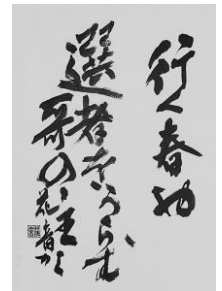 行く春や
選者をうらむ
哥の主
花音